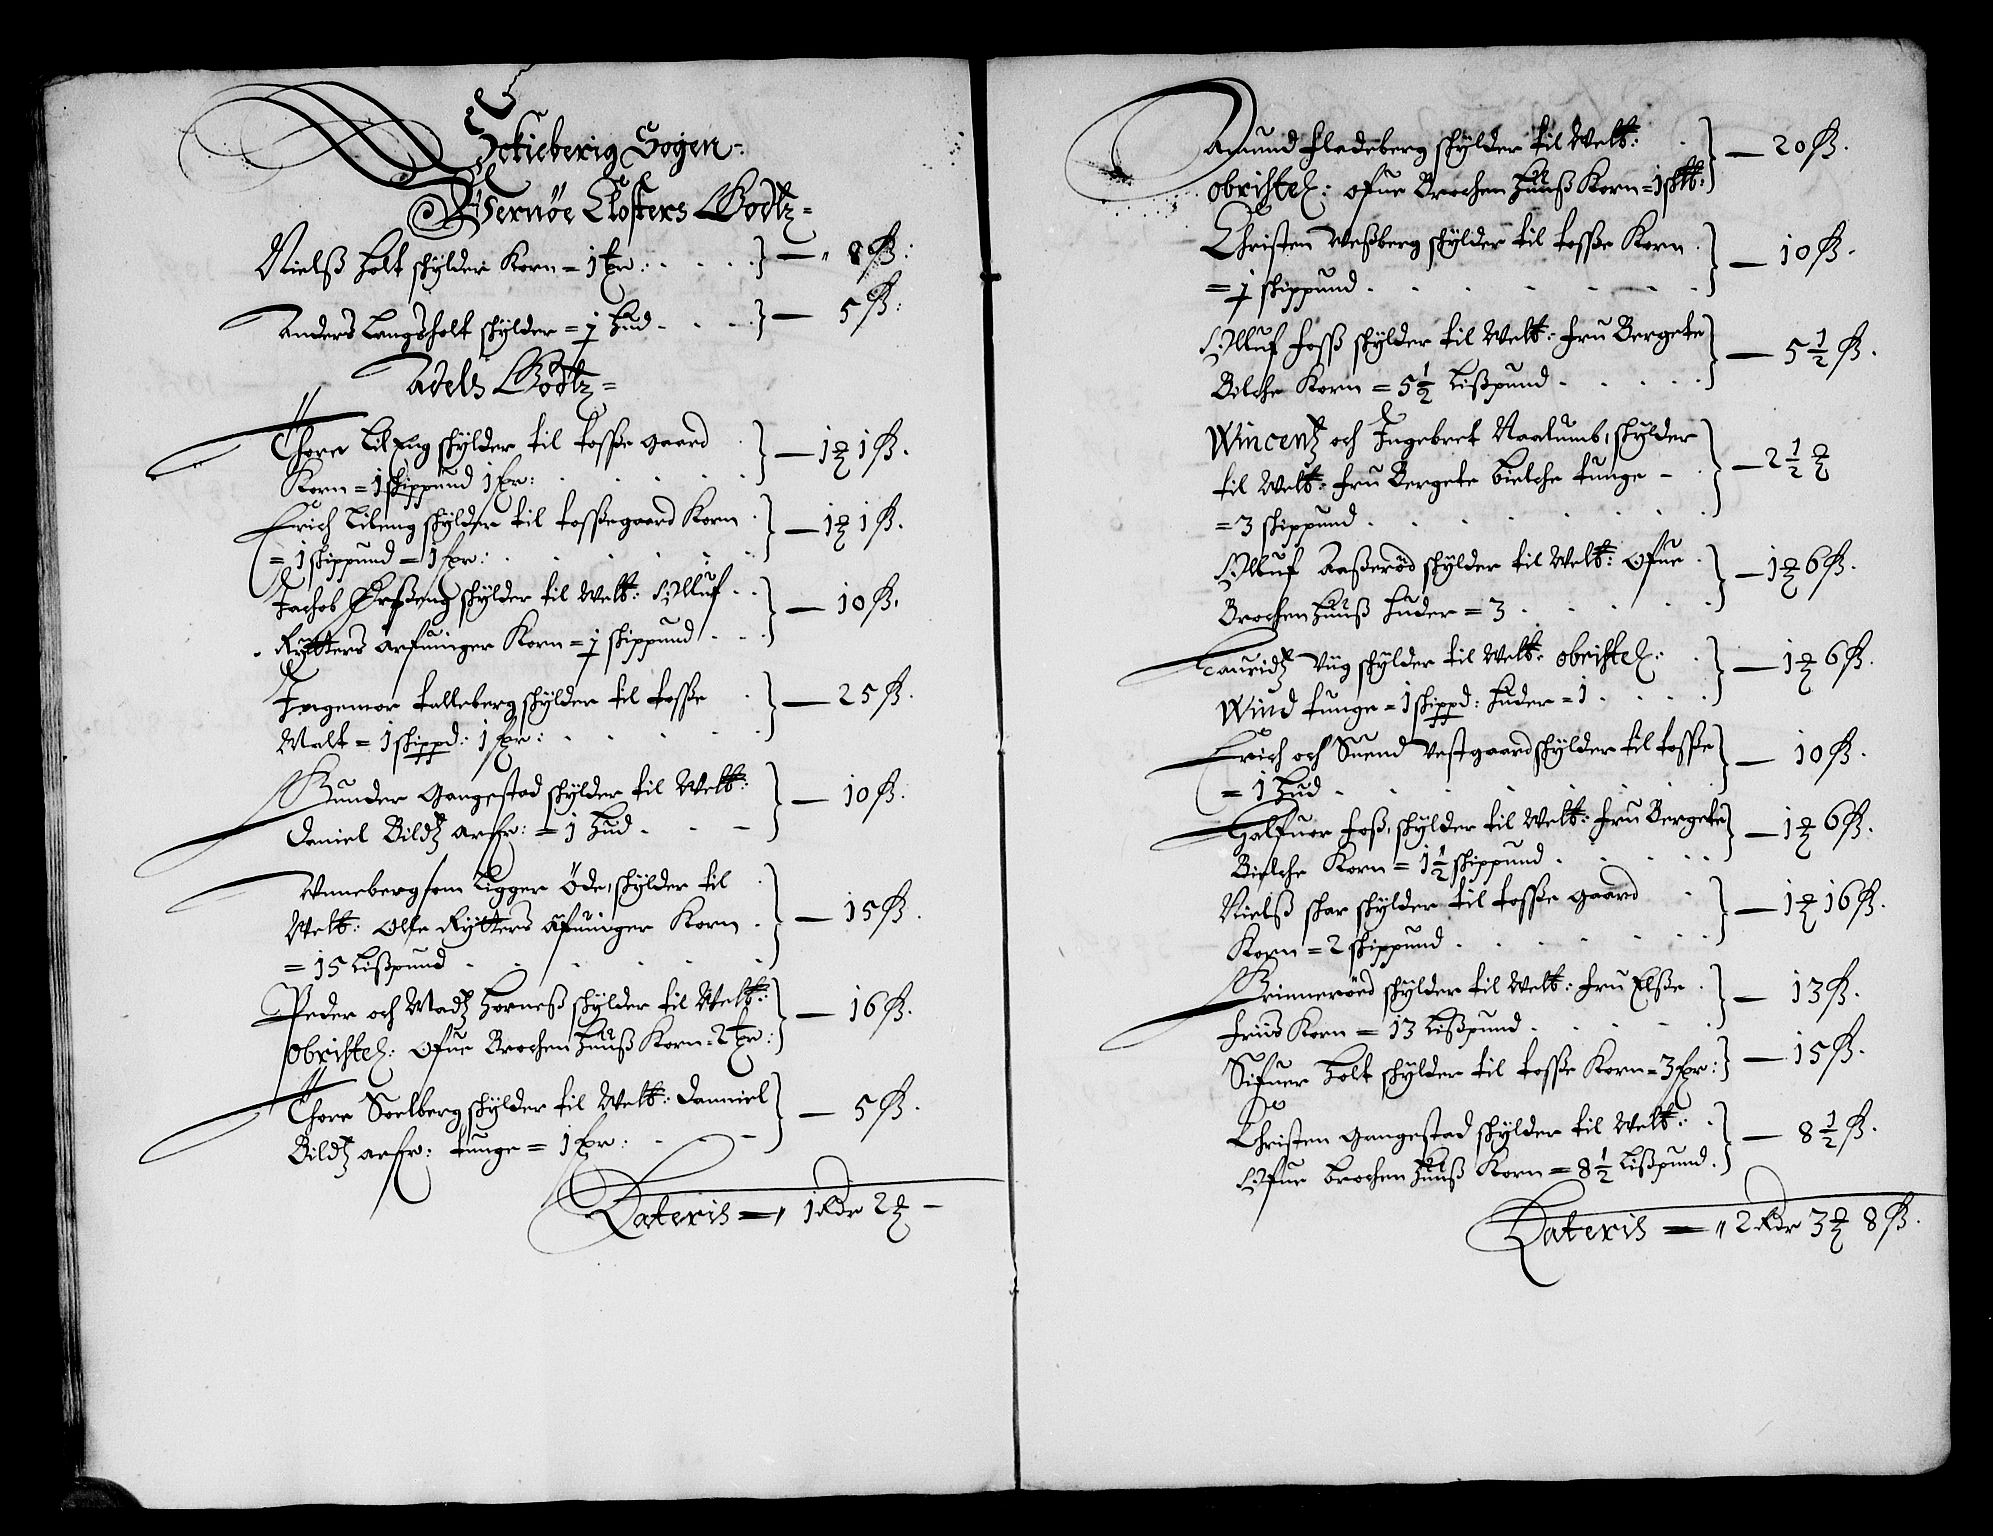 Schieberig Sogen
Wernöe Closters Godtz
Nielß Holt skylder Korn = 1 fr: — 8 ß:
Anders Langsholt skylder = ½ Hud — 5 ß:
Adels Godtz
Thore Lileng skylder til Tosße gaard
Korn = 1 skippund 1 fr: — 1 ₰ 1 ß.
Erich Lileng skylder til Tosßegaard Korn
= 1 skippund = 1 fr: — 1 ₰ 1 ß.
Jachob skylder til Welb: Olluf
Rytters arfuinger Korn = ½ skippund — 10 ß.
Ingemor Talleberg skylder til Tosße
Malt = 1 skippd: 1 fr: — 25 ß.
Gunder Gangestad skylder til Welb:
Daniel Bildtz arfr: = 1 Hud — 10 ß.
Unneberg som Ligger Öde, skylder til
Welb: Olfe Rytters arfuinger Korn
= 15 Lißpund — 15 ß.
Peder och Madtz Horneß skylder til Welb:
Obristel: Ofue Brochen Huuß Korn = 2 fr: — 16 ß.
Thore Soelberg skylder til Welb: Danniel
Bildtz arfr: Tunge = 1 fr: — 5 ß.
Lateris = 1 Rdr 2 ₰ —
Amund Fladeberg skylder til Welb:
Obristel: Ofue Brochen Huuß Korn = 1 skb: — 20 ß.
Christen Weßberg skylder til Tosße Korn
= ½ skippund — 10 ß.
Olluf Foss skylder til Welb: Fru Bergete
Bilche Korn = 5½ Lißpund — 5½ ß.
Wincentz och Ingebret Naalumb, skylder
til Welb: Fru Bergete Bielche Tunge
= 3 skippund — 2½ ₰
Olluf Aaßeröd skylder til Welb: Ofue
Brochen Huuß Huder = 3 — 1 ₰ 6 ß.
Lauridtz Viig skylder til Welb: Obristel:
Wind Tunge = 1 skippd: Huder = 1 — 1 ₰ 6 ß.
Erich och Suend Vestgaard skylder til Tosße
= 1 Hud — 10 ß.
Halfuor Foß, skylder til Welb: Fru Bergete
Bielche Korn = 1½ skippund — 1 ₰ 6 ß.
Nielß skar skylder til Tosße gaard
Korn = 2 skippund — 1 ₰ 16 ß.
Grinneröed skylder til Welb: Fru Elße
Friis Korn = 13 Lißpund — 13 ß.
Sifuer Holt skylder til Tosße Korn = 3 fr: — 15 ß.
Christen Gangestad skylder til Welb:
Ofue Brochen Huuß Korn = 8½ Lißpund — 8½ ß.
Lateris = 2 Rdr 3 ₰ 8 ß.